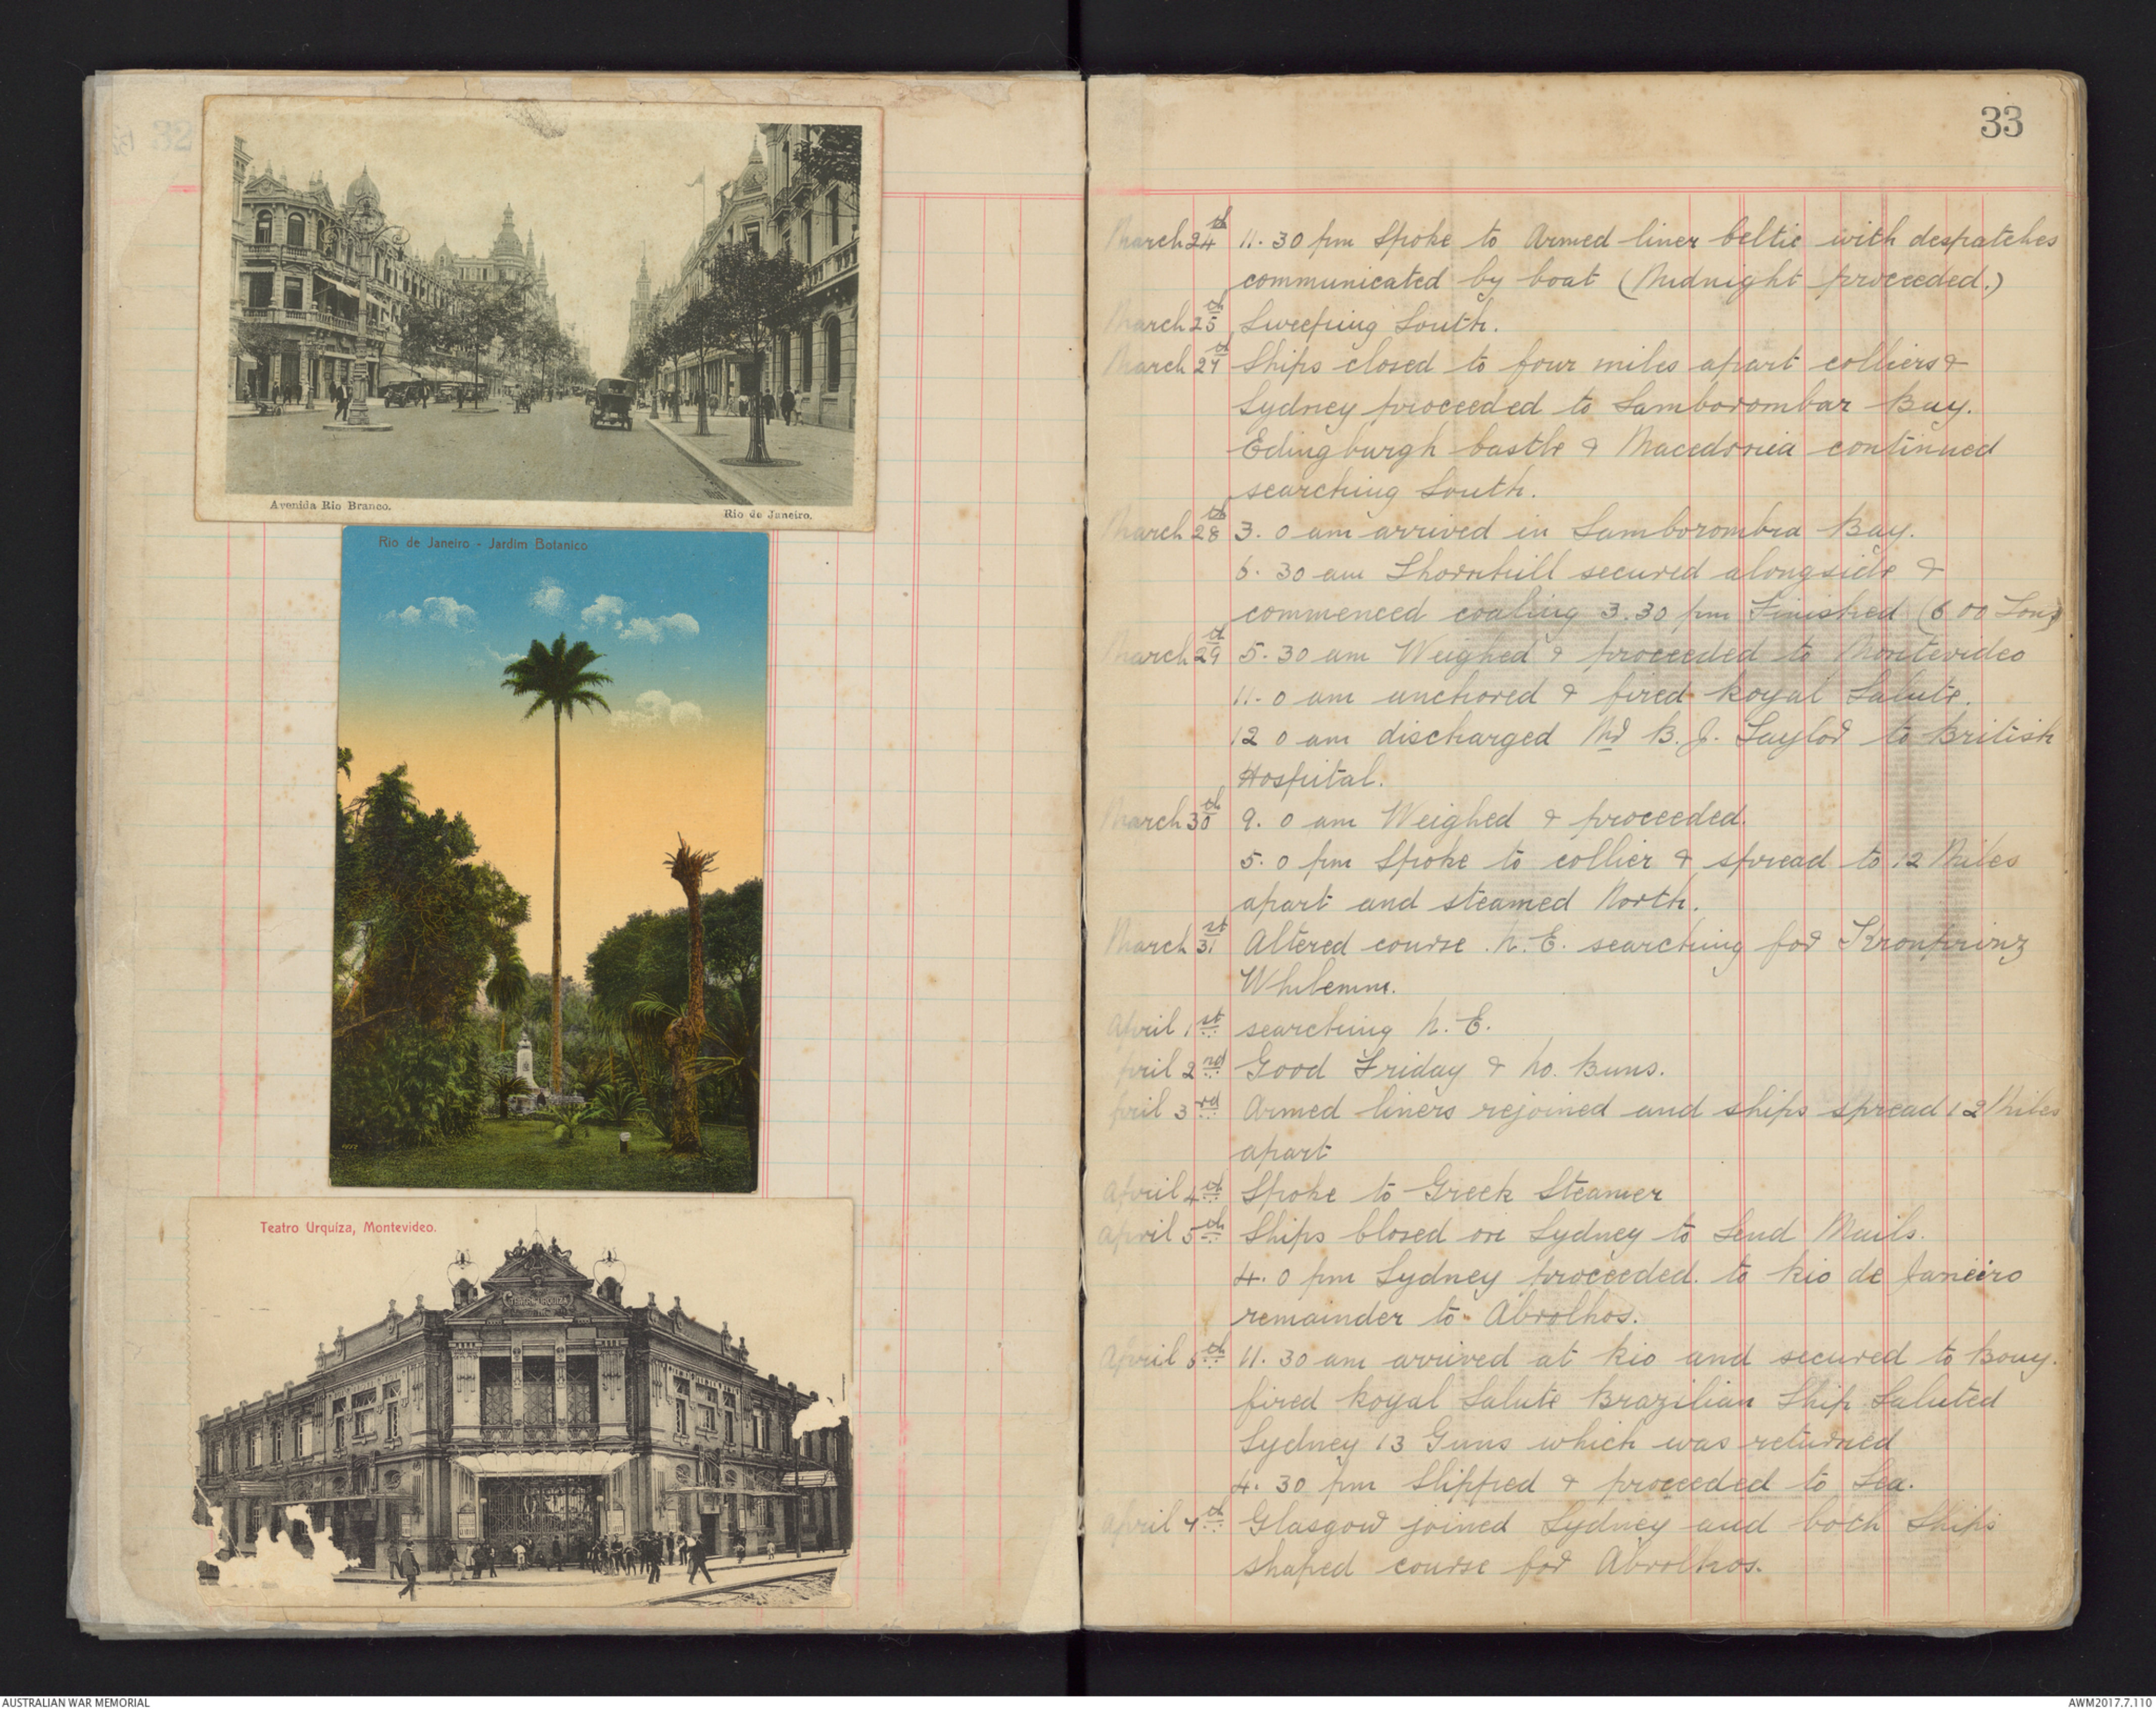 32
Avenida Rio Branco.
Rio de Janeiro.
Rio de Janeiro - Jardim Botanico
Teatro Urquiza, Montevideo.
33
March 24th 11. 30 pm Spoke to Armed liner Celtic with despatches
communicated by boat (Midnight proceeded.)
March 25th Sweeping South.
March 27th Ships closed to four miles apart colliers &
Sydney proceeded to Samborombar Bay.
Edingburgh Castle & Macedonia continued
searching South.
March 28th 3. 0 am arrived in Samborombra Bay.
6. 30 am Thornhill secured alongside &
commenced coaling 3.30 pm Finished (600 Tons)
March 29th 5. 30 am Weighed & proceeded to Montevideo
11. 0 am anchored & fired Royal Salute.
12 0 am discharged Mr B. J. Taylor to British
Hospital.
March 30th 9. 0 am Weighed & proceeded.
5. 0 pm Spoke to collier & spread to 12 Miles
apart and steamed North.
March 31st Altered course N. E. searching for Kronprinz
Whilemm.
April 1st searching N. E.
April 2nd Good Friday & No. Buns.
April 3rd Armed liners rejoined and ships spread 12 Miles
apart
April 4th Spoke to Greek Steamer
April 5th Ships Closed on Sydney to Send Mails.
4. 0 pm Sydney proceeded. to Rio de Janeiro
remainder to Abrolhos.
April 6th 11. 30 am arrived at Rio and secured to Bouy.
fired Royal Salute Brazilian Ship Saluted
Sydney 13 Guns which was returned
4. 30 pm Slipped & proceeded to Sea.
April 7th Glasgow joined Sydney and both Ships
shaped course for Abrolhos.
AUSTRALIAN WAR MEMORIAL
AWM2017.7.110